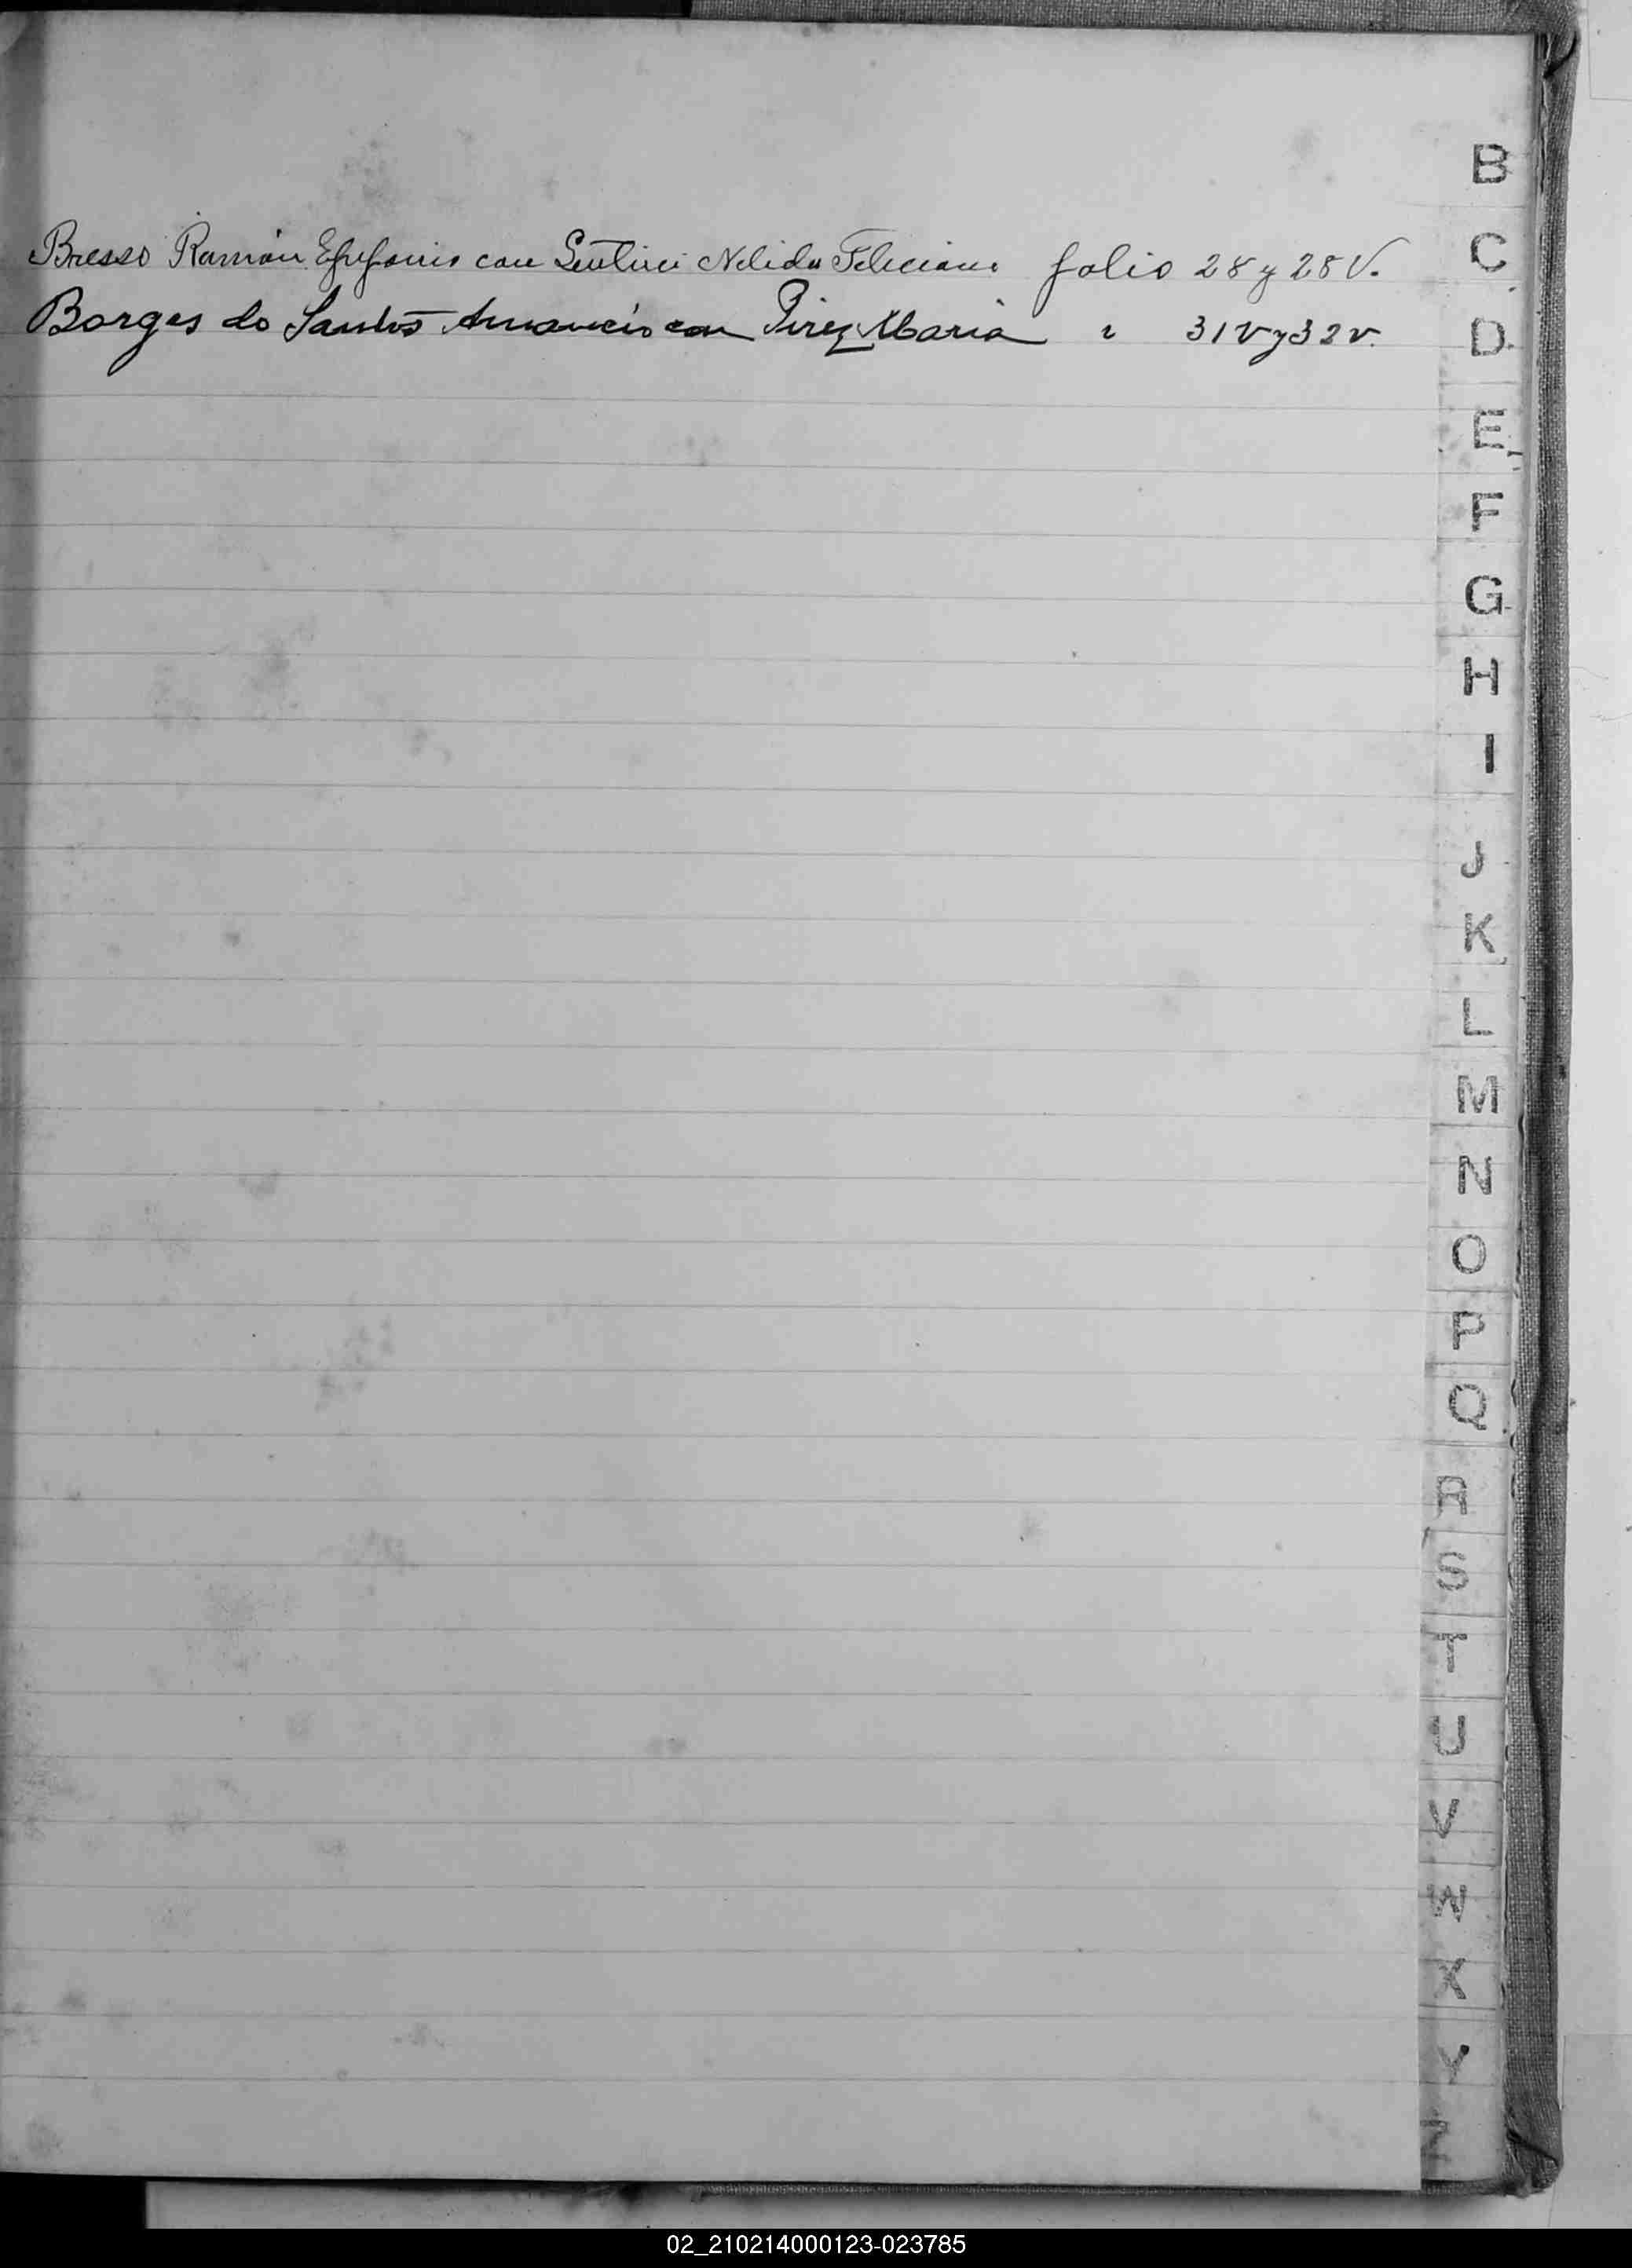 Bresso Ramón Epifanio con Nelida Feliciana folio 28 y 28 V.
Borges do Santos Amancio con Pirez Maria " 31 V y 32 v.
B
C
D
E
F
G
H
I
J
K
L
M
N
O
P
Q
R
S
T
U
V
W
X
Y
Z
02_210214000123-023785